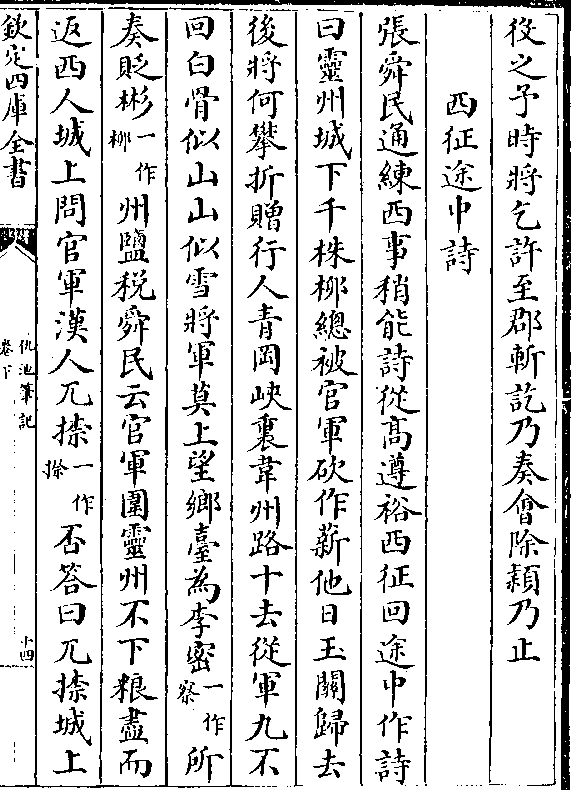 役之予時將乞許至郡斬訖乃奏會除潁乃止
西征途中詩
張舜民通練西事稍能詩從高遵裕西征回途中作詩
曰靈州城下千株栁總被官軍砍作薪他日玉關歸去
後將何攀折贈行人青岡峽裏韋州路十去從軍九不
回白骨似山山似雪將軍莫上望鄉臺為李密一作察所
奏貶彬一作郴州鹽稅舜民云官軍圍靈州不下粮盡而
返西人城上問官軍漢人兀攃一作㩇否答曰兀攃城上
欽定四庫全書
仇池筆記
卷下
十四